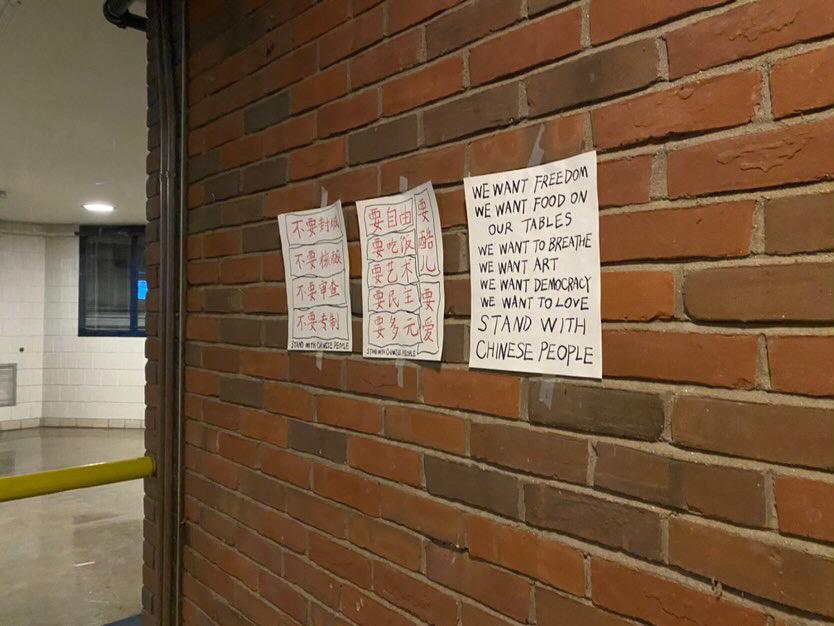 不要封城
不要核酸
不要审查
不要专制
STAND WITH CHINESE PEOPLE
要自由
要吃饭
要艺术
要民主
要多元
要酷儿
要爱
STAND WITH CHINESE PEOPLE
WE WANT FREEDOM
WE WANT FOOD ON
OUR TABLES
WE WANT TO BREATHE
WE WANT ART
WE WANT DEMOCRACY
WE WANT TO LOVE
STAND WITH
CHINESE PEOPLE